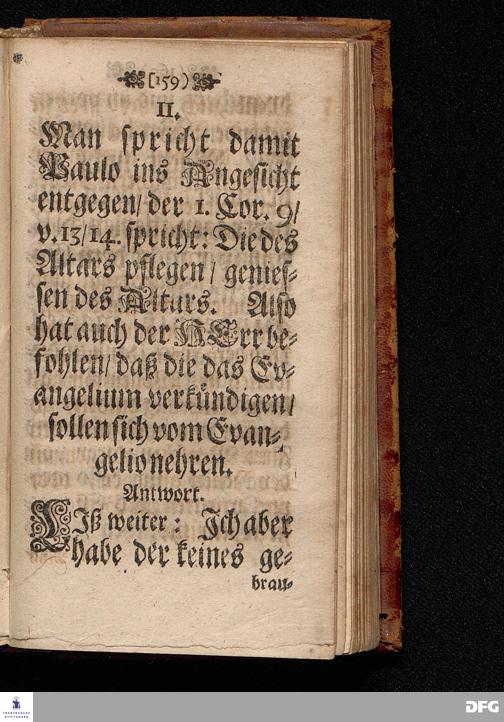 [159)
II.
Man spricht damit
Paulo ins Angesicht
entgegen/ der 1. Cor. 9/
v. 13/14. spricht: Die des
Altars pflegen / genies-
sen des Altars. Also
hat auch der HErr be-
fohlen/ daß die das Ev-
angelium verkündigen/
sollen sich vom Evan-
gelio nehren.
Antwort.
LIß weiter: Ich aber
habe der keines ge-
brau-
FRANCKESCHE
STIFTUNGEN
DFG